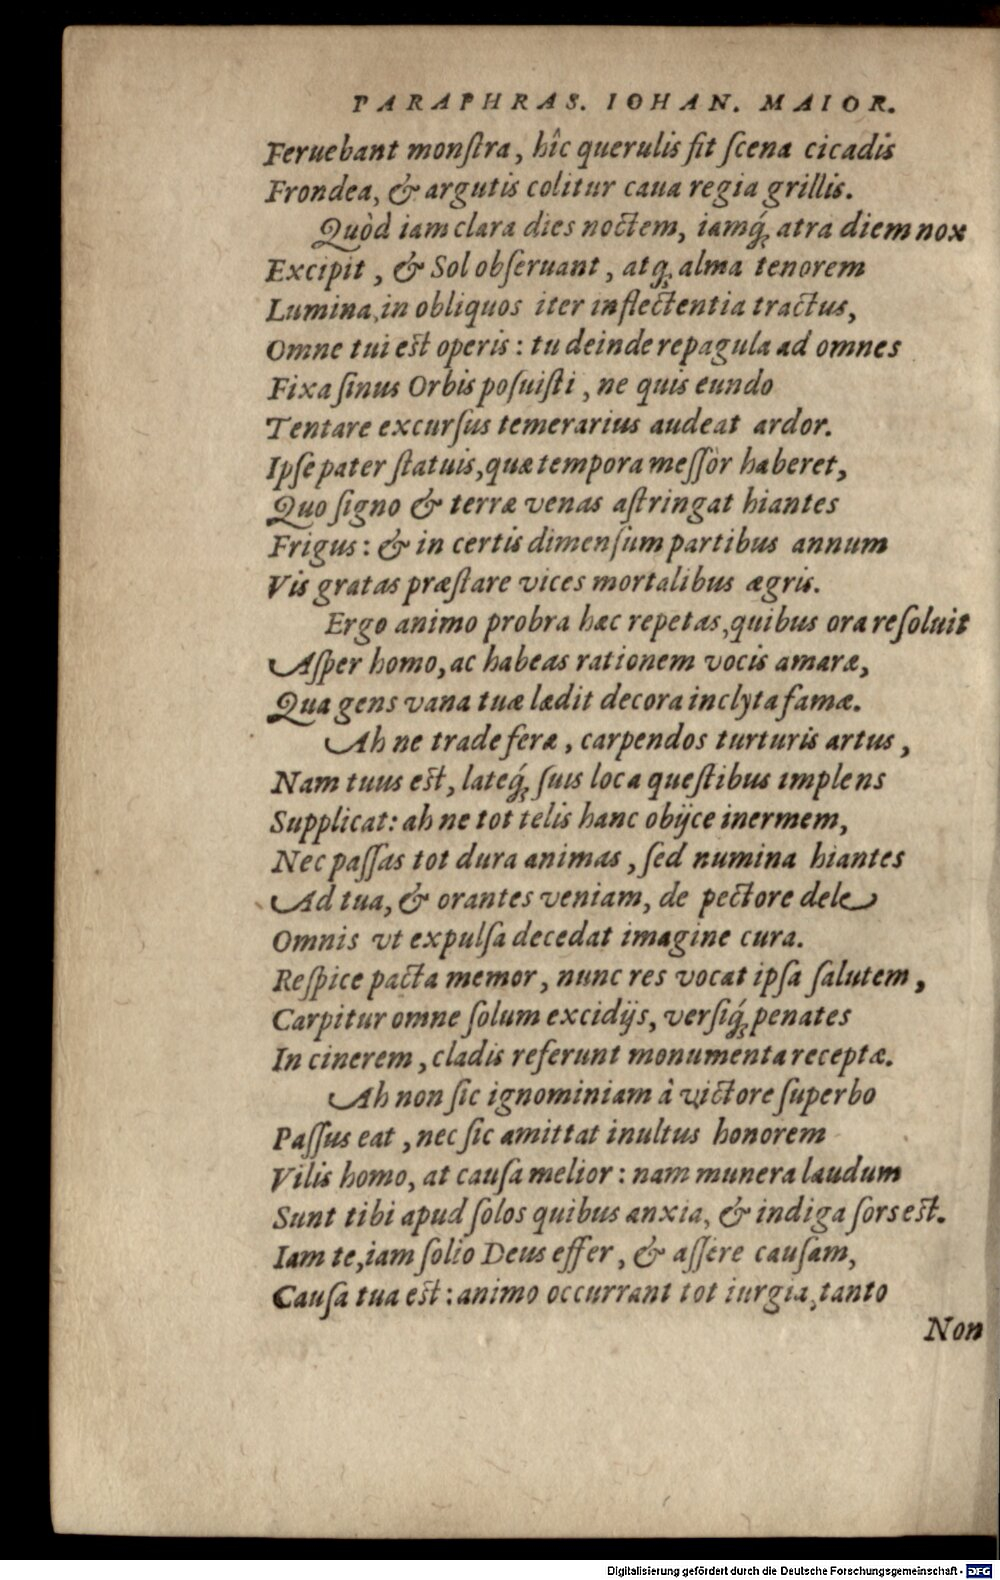 PARAPHRAS. IOHAN. MAIOR.
Feruebant monſtra, hîc querulis fit ſcena cicadis
Frondea, & argutis colitur caua regia grillis.
Quòd iam clara dies noctem, iamq́; atra diem nox
Excipit, & Sol obſeruant, atq; alma tenorem
Lumina, in obliquos iter inflectentia tractus,
Omne tui est operis: tu deinde repagula ad omnes
Fixa ſinus Orbis poſuiſti, ne quis eundo
Tentare excurſus temerarius audeat ardor.
Ipſe pater ſtatuis, quæ tempora meſſor haberet,
Quo ſigno & terræ venas aſtringat hiantes
Frigus: & in certis dimenſum partibus annum
Vis gratas præſtare vices mortalibus ægris.
Ergo animo probra hæc repetas, quibus ora reſoluit
Aſper homo, ac habeas rationem vocis amaræ,
Qua gens vana tuæ lædit decora inclyta famæ.
Ah ne trade feræ, carpendos turturis artus,
Nam tuus est, lateq́; ſuis loca queſtibus implens
Supplicat: ah ne tot telis hanc obijce inermem,
Nec paſſas tot dura animas, ſed numina hiantes
Ad tua, & orantes veniam, de pectore dele
Omnis vt expulſa decedat imagine cura.
Reſpice pacta memor, nunc res vocat ipſa ſalutem,
Carpitur omne ſolum excidijs, verſiq́; penates
In cinerem, cladis referunt monumenta receptæ.
Ah non ſic ignominiam à victore ſuperbo
Paſſus eat, nec ſic amittat inultus honorem
Vilis homo, at cauſa melior: nam munera laudum
Sunt tibi apud ſolos quibus anxia, & indiga ſors est.
Iam te, iam ſolio Deus effer, & aſſere cauſam,
Cauſa tua est: animo occurrant tot iurgia, tanto
Non
Digitalisierung gefördert durch die Deutsche Forschungsgemeinschaft - DFG